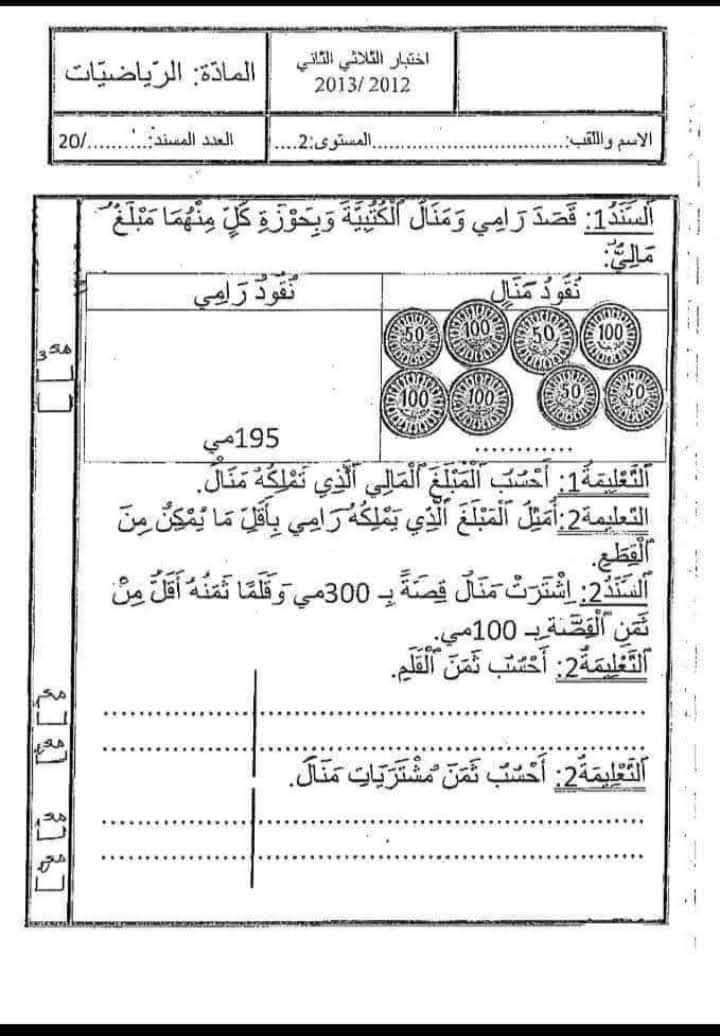 المادّة: الرّياضيّات
اختبار الثلاثي الثاني
2013/ 2012
الاسم واللقب:................................المستوى:2....
العدد المسند:........../20
اَلسَّنَدُ1: قَصَدَ رَامِي وَمَنَالُ اَلْكُتُبِيَّةَ وَبِحَوْزَةِ كَلٍّ مِنْهُمَا مَبْلَغٌ
مَالِيٌّ:
نُقُودُ مَنَالِ
نُقُودُ رَامِي
50 100 50 100
100 100 50 50
............
195مي
اَلتَّعْلِيمَةُ1: أَحْسُبُ اَلْمَبْلَغَ اَلْمَالِي اَلَّذِي تَمْلِكُهُ مَنَالُ.
التعليمة2: أُمَثِّلُ اَلْمَبْلَغَ اَلَّذِي يَمْلِكُهُ رَامِي بِأَقَلِّ مَا يُمْكِنُ مِنَ
اَلْقِطَعِ.
اَلسَّنَدُ2: اِشْتَرَتْ مَنَالُ قِصَّةً بِـ 300مي وَقَلَمًا ثَمَنُهُ أَقَلُّ مِنْ
ثَمَنِ اَلْقِصَّة بِـ 100مي.
اَلتَّعْلِيمَةُ2: أَحْسُبُ ثَمَنَ اَلْقَلَمِ.
اَلتَّعْلِيمَةُ2: أَحْسُبُ ثَمَنَ مُشْتَرَيَاتِ مَنَالَ.